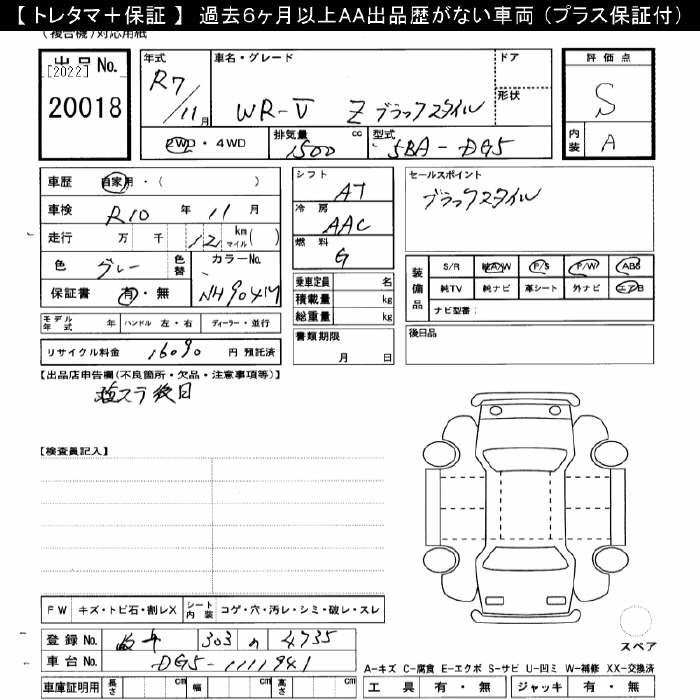 【 トレタマ＋保証 】 過去6ヶ月以上AA出品歴がない車両 (プラス保証付)
(複合機)対応用紙
出品 No.
[2022]
20018
年式
R7/11月
車名・グレード
WR-V Z ブラックスタイル
ドア
形状
評価点
S
内装 A
2WD ・ 4WD
排気量 1500 cc
型式 5BA - DG5
車歴 自家用・( )
車検 R10 年 11 月
走行 万 千 12 km マイル ( )
色 グレー 色替
カラーNo. NH904M
保証書 有・無
シフト AT
冷房 AAC
燃料 G
セールスポイント
ブラックスタイル
乗車定員 名
積載量 kg
総重量 kg
書類期限
月 日
装備品
S/R 純A/W P/S P/W ABS
純TV 純ナビ 革シート 外ナビ エアB
ナビ型番：
後日品
モデル年式 年 ハンドル 左・右 ディーラー・並行
リサイクル料金 16090 円 預託済
【出品店申告欄(不良箇所・欠品・注意事項等)】
塩スラ後日
【検査員記入】
FW キズ・トビ石・割レX シート内装 コゲ・穴・汚レ・シミ・破レ・スレ
登録 No. 岐阜 303 の 4735
車台 No. DG5-1111941
車庫証明用 長さ cm 幅 cm 高さ cm
スペア
A-キズ C-腐食 E-エクボ S-サビ U-凹ミ W-補修 XX-交換済
工具 有・無 ジャッキ 有・無